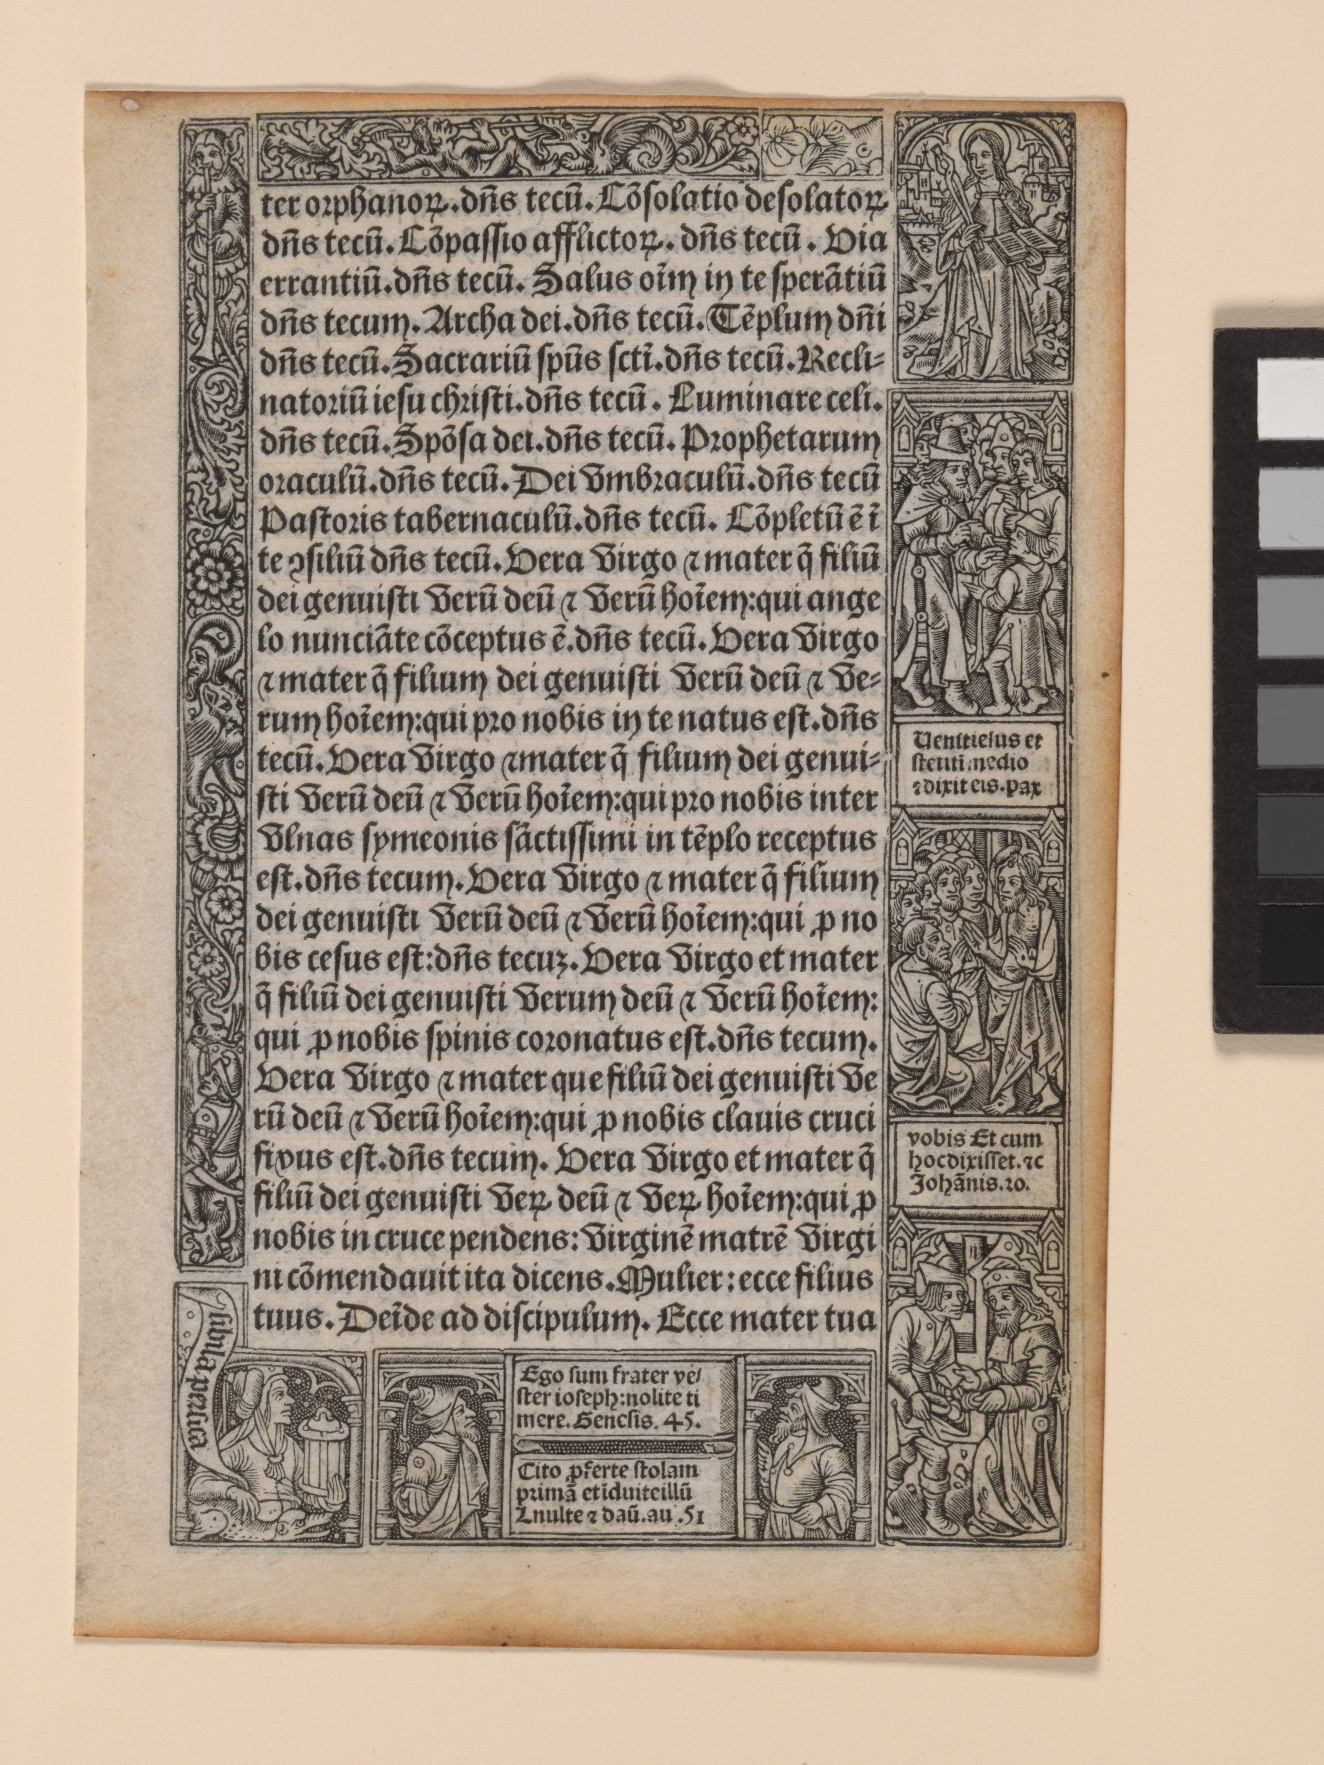 ter orphanoꝝ.dñs tecũ.Cõsolatio desolatoꝝ
dñs tecũ.Cõpassio afflictoꝝ. dñs tecũ. Via
errantiũ.dñs tecũ. Salus oĩm in te sperãtiũ
dñs tecum.Archa dei.dñs tecũ.Tẽplum dñi
dñs tecũ.Sacrariũ spũs sctĩ.dñs tecũ.Recli-
natoriũ iesu christi.dñs tecũ. Luminare celi.
dñs tecũ.Spõsa dei.dñs tecũ. Prophetarum
oraculũ.dñs tecũ. Dei vmbraculũ.dñs tecũ
Pastoris tabernaculũ.dñs tecũ. Cõpletũ ẽ ĩ
te ꝯsiliũ dñs tecũ.Vera virgo ⁊ mater q̃ filiũ
dei genuisti verũ deũ ⁊ verũ hoĩem:qui ange
lo nunciãte cõceptus ẽ.dñs tecũ.Vera virgo
⁊ mater q̃ filium dei genuisti verũ deũ ⁊ ve-
rum hoĩem:qui pro nobis in te natus est.dñs
tecũ.Vera virgo ⁊mater q̃ filium dei genui-
sti verũ deũ ⁊ verũ hoĩem:qui pro nobis inter
vlnas symeonis sãctissimi in tẽplo receptus
est.dñs tecum.Vera virgo ⁊ mater q̃ filium
dei genuisti verũ deũ ⁊ verũ hoĩem:qui ꝓ no
bis cesus est:dñs tecuꝫ.Vera virgo et mater
q̃ filiũ dei genuisti verum deũ ⁊ verũ hoĩem:
qui ꝓ nobis spinis coronatus est.dñs tecum.
Vera virgo ⁊ mater que filiũ dei genuisti ve
rũ deũ ⁊ verũ hoĩem:qui ꝓ nobis clauis cruci
fixus est.dñs tecum. Vera virgo et mater q̃
filiũ dei genuisti veꝝ deũ ⁊ veꝝ hoĩem:qui ꝓ
nobis in cruce pendens: virginẽ matrẽ virgi
ni cõmendauit ita dicens.Mulier:ecce filius
tuus. Deĩde ad discipulum. Ecce mater tua
Uenit iesus et
stetit medio
⁊ dixit eis.pax
vobis Et cum
hoc dixisset.⁊c
Johãnis.20.
sibila persica
Ego sum frater ve/
ster ioseph:nolite ti
mere. Genesis. 45.
Cito ꝓferte stolam
primã et iduite illũ